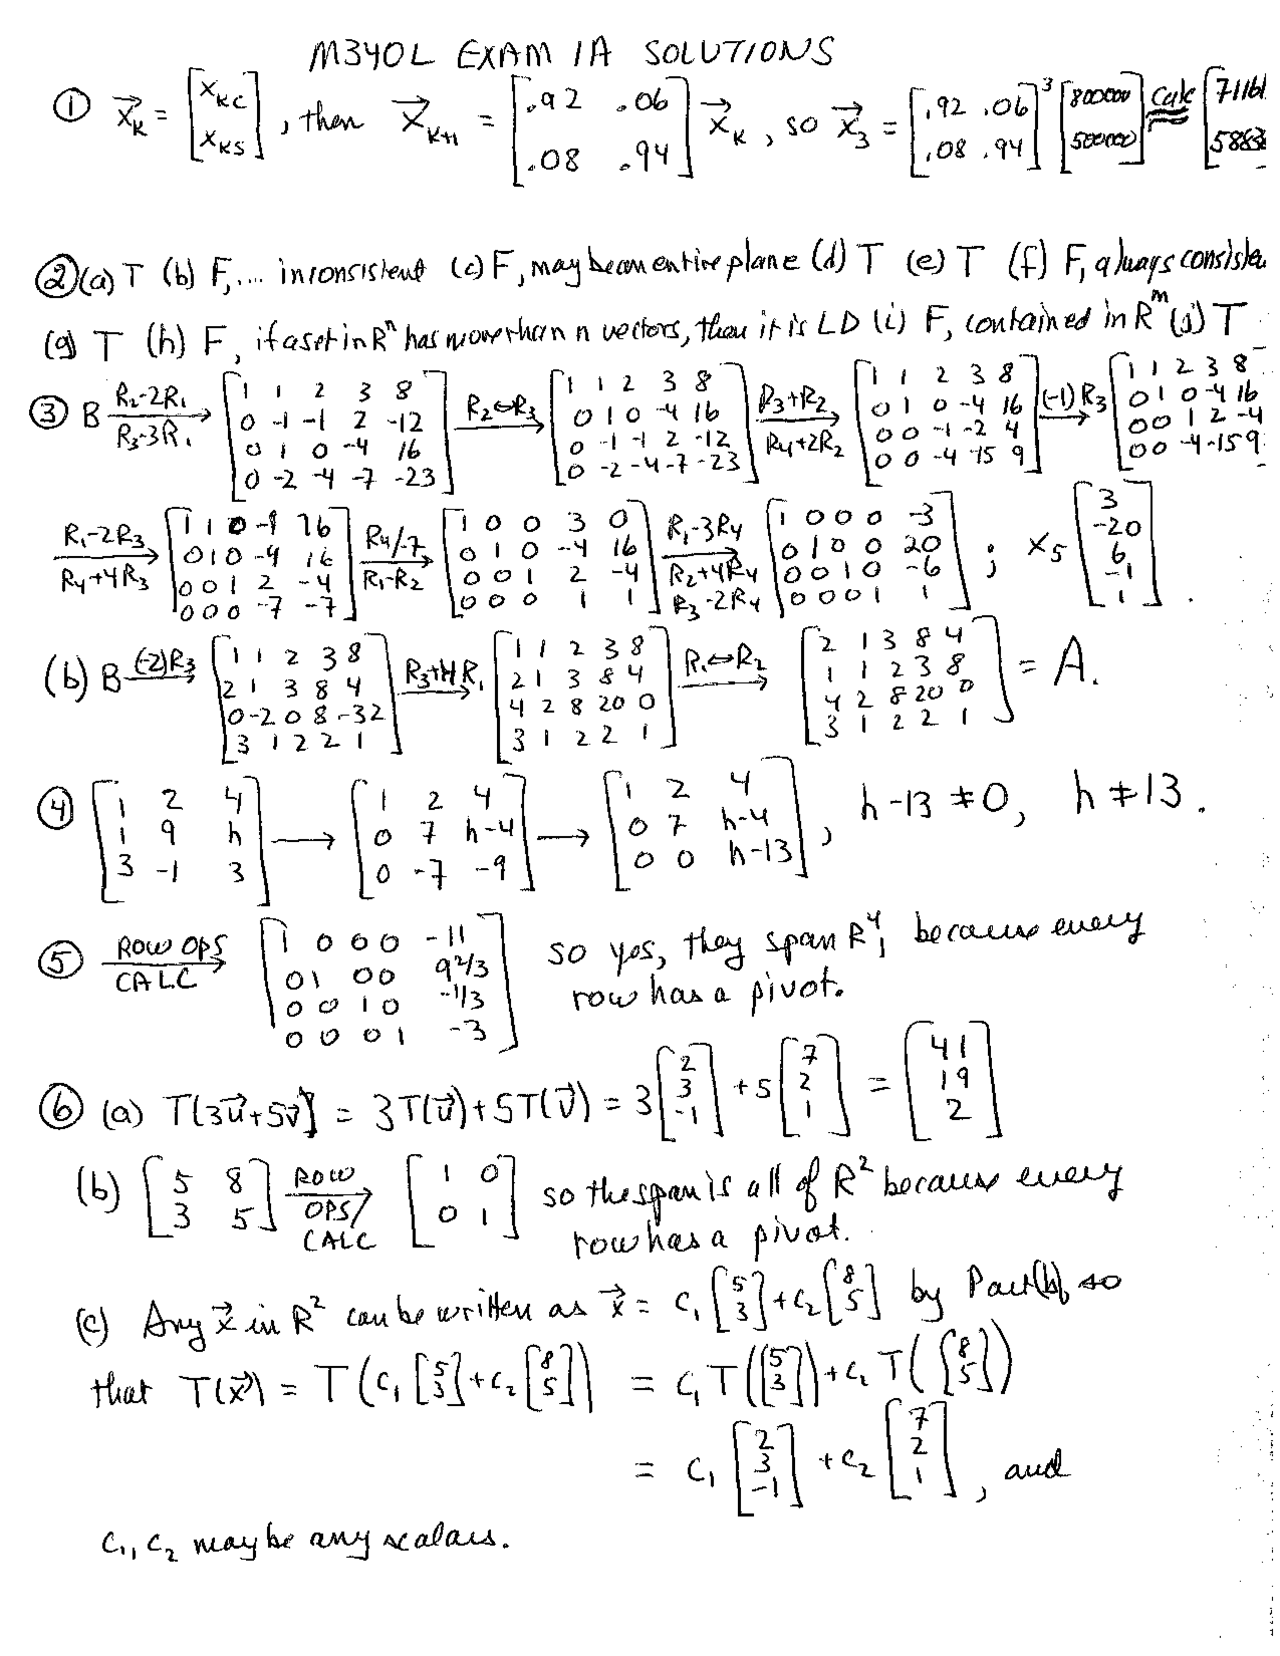 M340L EXAM 1A SOLUTIONS
① x⃗_k = [x_kc; x_ks], then x⃗_k+1 = [.92 .06; .08 .94] x⃗_k, so x⃗_3 = [.92 .06; .08 .94]^3 [800000; 500000] Calc =
② (a) T (b) F, ... inconsistent (c) F, may be an entire plane (d) T (e) T (f) F, always
(g) T (h) F, if a set in R^n has more than n vectors, then it is LD (i) F, contained in R^m (j) T
③ B R2-2R1, R3-3R1 → [1 1 2 3 8; 0 -1 -1 2 -12; 0 1 0 -4 16; 0 -2 -4 -7 -23] R2↔R3 → [1 1 2 3 8; 0 1 0 -4 16; 0 -1 -1 2 -12; 0 -2 -4 -7 -23] R3+R2, R4+2R2 → [1 1 2 3 8; 0 1 0 -4 16; 0 0 -1 -2 4; 0 0 -4 -15 9] (-1)R3 → [1 1 2 3 8; 0 1 0 -4 16; 0 0 1 2 -4; 0 0 -4 -15 9]
R1-2R3, R4+4R3 → [1 1 0 -1 16; 0 1 0 -4 16; 0 0 1 2 -4; 0 0 0 -7 -7] R4/-7, R1-R2 → [1 0 0 3 0; 0 1 0 -4 16; 0 0 1 2 -4; 0 0 0 1 1] R1-3R4, R2+4R4, R3-2R4 → [1 0 0 0 -3; 0 1 0 0 20; 0 0 1 0 -6; 0 0 0 1 1]; x5 [3; -20; 6; -1; 1].
(b) B (-2)R3 → [1 1 2 3 8; 2 1 3 8 4; 0 -2 0 8 -32; 3 1 2 2 1] R3+4R1 → [1 1 2 3 8; 2 1 3 8 4; 4 2 8 20 0; 3 1 2 2 1] R1↔R2 → [2 1 3 8 4; 1 1 2 3 8; 4 2 8 20 0; 3 1 2 2 1] = A.
④ [1 2 4; 1 9 h; 3 -1 3] → [1 2 4; 0 7 h-4; 0 -7 -9] → [1 2 4; 0 7 h-4; 0 0 h-13], h-13 ≠ 0, h ≠ 13.
⑤ ROW OPS CALC → [1 0 0 0 -11; 0 1 0 0 9 2/3; 0 0 1 0 -1/3; 0 0 0 1 -3] so yes, they span R^4, because every
row has a pivot.
⑥ (a) T(3u⃗+5v⃗] = 3T(u⃗)+5T(v⃗) = 3[2; 3; -1] + 5[7; 2; 1] = [41; 19; 2]
(b) [5 8; 3 5] ROW OPS/ CALC → [1 0; 0 1] so the span is all of R^2 because every
row has a pivot.
(c) Any x⃗ in R^2 can be written as x⃗ = c1[5; 3]+c2[8; 5] by Part (b), so
that T(x⃗) = T(c1[5; 3]+c2[8; 5]) = c1T([5; 3])+c2T([8; 5])
= c1[2; 3; -1] + c2[7; 2; 1], and
c1, c2 may be any scalars.